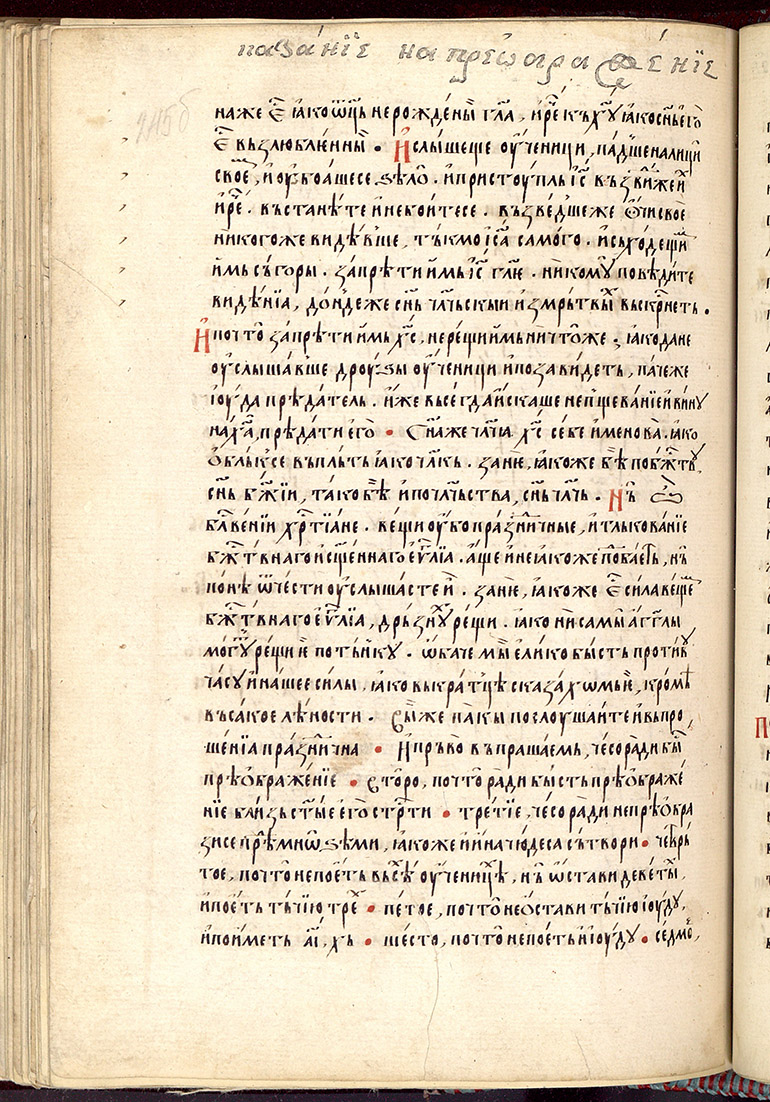 паѹанїе на прѣѡбраженїе
245б
на же є҃ ꙗко ѿц҃ь нерождены҄ гл҃а, и реⷱ къ хꙋ҃ ꙗко сн҃ь єго
є҃ възлюблѥнны҄ и слышеще оученици, падⷪше на лици
своє, и оубоꙗше се ѕѣло. и пристоупль і҃с къ
и реⷱ. въстанѣте и не боите се. възведⷪше же ѻчи своє
никого же видѣвше, тькмо і҃са самого. и сьходещиⷨ
имь сь горы. запрѣти имь і҃с гл҃ѥ. никомꙋ повѣдите
видѣнїа, дондеже сн҃ь чл҃чьскыи из мрьтвыⷯ въскрⷭнеть.
И почто запрѣти имь хⷭ, не рещи имь ничтоже. ꙗко да не
оуслышавше дроуѕы оученици и позавидеть, паче же
іоуда прѣдатель. иже въсегда искаше непщеванїе и винꙋ
на хⷭа, прѣдати єго • Сн҃а же чл҃чїа хⷭ себе именова. ꙗко
ѻблькⷪсе въ пльть ꙗко чл҃кь. занѥ, ꙗкоже бѣ по бжⷭтвꙋ
сн҃ь бж҃їи, тако бѣ и по чл҃чьства, сн҃ь чл҃чь. Нъ ѿ
бл҃гвенїи хрⷭтїане. вещи оубо празⷣничные, и тлькованїе
бжⷭтвнаго и сщ҃еннаго єѵⷢлїа. аще и не ꙗкоже пⷪбаѥть, нъ
понѣ ѿчести оуслышасте и. занѥ, ꙗкоже є҃ сила вещеⷨ
бжⷭтвнаго єѵⷢлїа, дрьзнꙋⷯ рещи. ꙗко ни сами агг҃лы
могꙋⷮ рещи ѥ по тьнкꙋ. ѡбаче мы єлико бысть противꙋ
часꙋ и нашее силы, ꙗко въкратцѣ сказахѡмь ѥ, кромѣ
въсакое лѣности. Вы же пакы послоушаите и въпро
шенїа празⷣнична • И прьво въпрашаемь, чесо ради быⷭ
прѣѻбраженїе • Второ, почто ради бысть прѣѻбраже
нїе близь ст҃ые єго стрⷭти • третїе, чесо ради не прѣѻбра
зи се прⷣѣ мнѡѕѣми, ꙗкоже и ина чюдеса сътвори • четврь
тое, почто не поеть въсѣ оученикѣ, нъ ѡстави деветыⷯ,
и поеть тьчїю треⷯ • петое, почто не ѻстави тьчїю іоудꙋ,
и поиметь а҃і, хъ • шесто, почто не поеть и іоудꙋ • седмо,